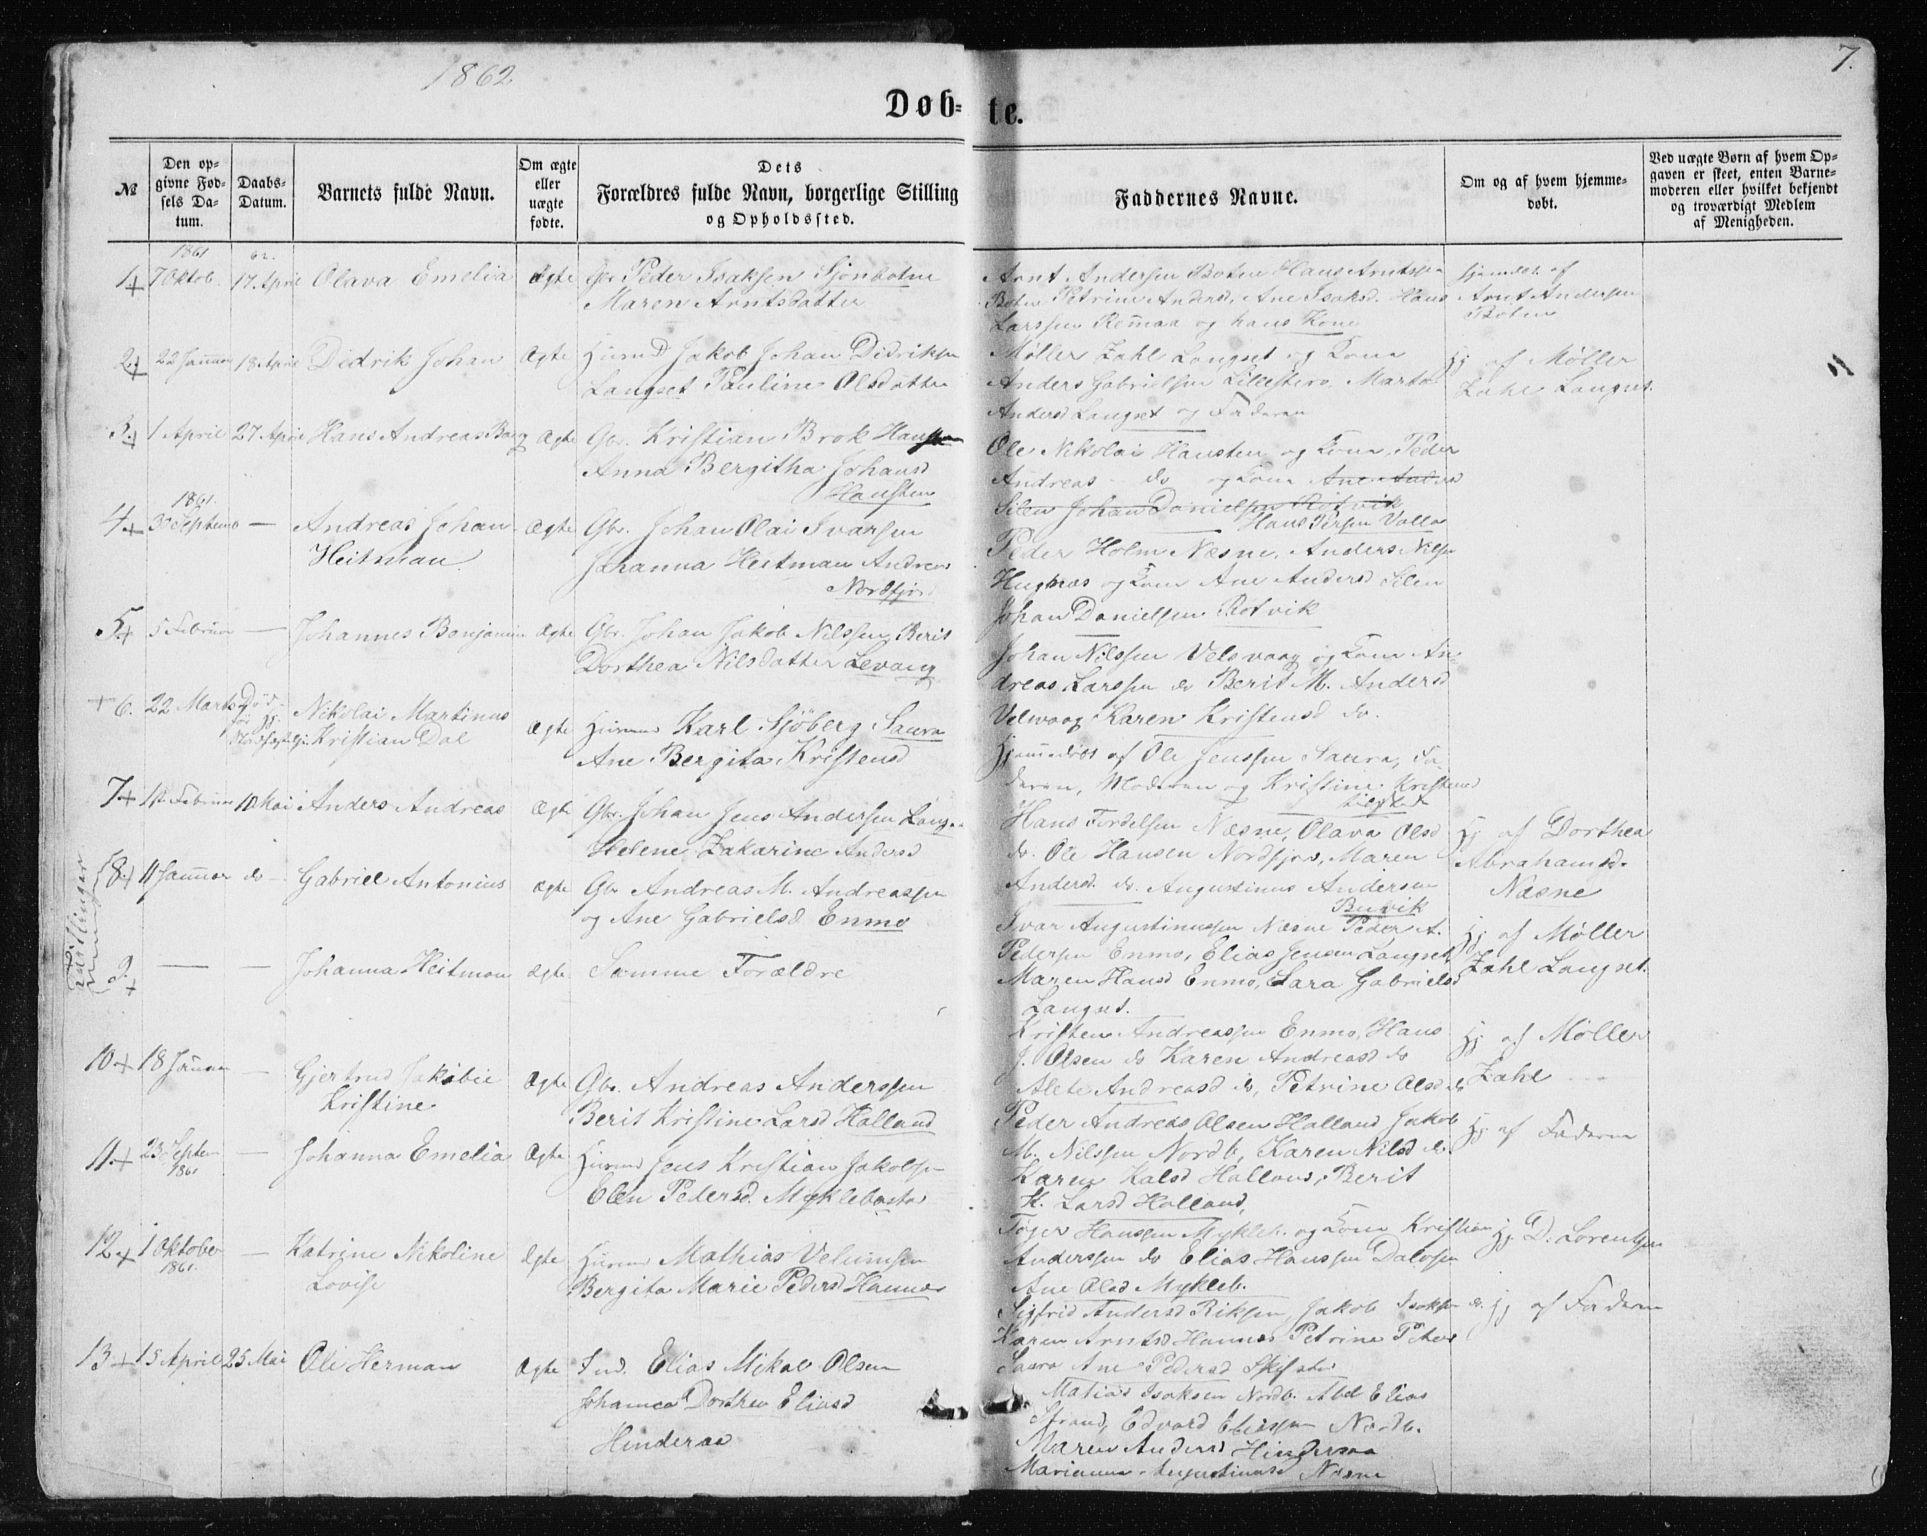 1862
7.
Døbte.
№
Den opgivne Fødsels Datum.
Daabs-Datum.
Barnets fulde Navn.
Om ægte eller uægte fødte.
Dets Forældres fulde Navn, borgerlige Stilling og Opholdssted.
Faddernes Navne.
Om og af hvem hjemmedøbt.
Ved uægte Børn af hvem Opgaven er skeet, enten Barnemoderen eller hvilket bekjendt og troværdigt Medlem af Menigheden.
1861
62.
1 + 7 Oktob. 17 April Olava Emelia Ægte Gbr Peder Isaksen Sjonbotne
Maren Arntsdatter
Arnt Andersen Botne Hans Arntssen
Botne Petrine Andersd. Ane Isaksd. Hans
Larssen Remaa og hans Kone
hjemdøb. af
Arnt Andersen
Botne
2 + 22 Januar 18 April Didrik Johan Ægte Huusmd Jakob Johan Didriksen
Langset Pauline Olsdatter
Møller Zahl Langset og Kone
Anders Gabrielsen Marta
Andersd Langset og Faderen
Hj af Møller
Zahl Langset
3 + 1 April 27 April Hans Andreas Bang Ægte Gbr. Kristian Brok Hansen
Anna Bergitha Johansd
Haugsten
Ole Nikolai Haugsten og Kone, Peder
Andreas do og Kone Ane Andersd
Silen Johan Danielsen Rotvik
Hans Persen Valla
1861.
4 + 30 Septemb — Andreas Johan Heitman Ægte Gbr. Johan Olai Ivarsen
Johanna Heitman Andreasd
Nordfjord
Peder Holm Næsne, Anders Nilsen
Hugnæs og Kone Ane Andersd Silen
Johan Danielsen Rotvik
5. + 5 Februar — Johannes Benjamin Ægte Gbr. Johan Jakob Nilssen Berit
Dorthea Nilsdatter Levang
Johan Nilssen Velsvaag og Kone An-
dreas Larssen do Berit M. Andersd
Velsvaag Karen Kristensd do.
+ 6. 22 Marts Død
Nikolai Martinus
Kristian Dal Ægte Huusmd Karl Sjöberg Saura
Ane Bergita Kristensd
Hjemmedøbt af Ole Jenssen Saura, Fa-
deren, Moderen og Kristine Kristensd
7 + 11 Februar 10 Mai Anders Andreas Ægte Gbr. Johan Jens Andersen Langset
Helene Zakarine Andersd
Hans Næsne, Olava Olsd
do. Ole Hansen Nordfjord, Maren
Andersd. do. Augustinus Andersen
Buvik
Hj af Dorthea
Abrahamsd.
Næsne
Tvillinger
8 + 11 Januar do — Gabriel Antonius Ægte Gbr Andreas M. Andreassen
og Ane Gabrielsd Enmo
Ivar Augustinussen Næsne Peder A.
Pedersen Enmo, Elias Jensen Langset
Maren Hansd Enmo, Sara Gabrielsd
Langset.
Hj af Møller
Zahl Langset.
9. + — — Johanna Heitman Ægte Samme Forældre
Kristen Andreassen Enmo, Hans
J. Olsen do Karen Andreasd do
Alete Andreasd do, Petrine Olsd do
Hj af Møller
Zahl
10 + 18 Januar — Gjertrud Jakobie
Kristine Ægte Gbr. Andreas Anderssen
Berit Kristine Larsd Holland
Peder Andreas Olsen Holland Jakob
M. Nilssen Nordb, Karen Nilsd do
Karen Kalsd Holland, Berit
K. Larsd Holland,
Hj af Faderen
11. + 23 Septem
1861 — Johanna Emelia Ægte Huusmd Jens Kristian Jakobsen
Elen Pedersd Myklebostad
Hanssen Mykleb. og Kone Kristian
Anderssen do Elias Hanssen Dalosen
Ane Olsd Mykleb.
Hj D. Lorentsen
12 + 1 Oktober
1861. — Katrine Nikoline
Lovise Ægte Huusmd Mathias Velumsen
Bergita Marie Pedersd Hannæs
Sigfrid Andersd Jakob Isaksen do
Karen Arntsd Hannæs Petrine Peters
Saura Ane Pedersd
Hj af Faderen
13 + 15 April 25 Mai Ole Herman Ægte Ind. Elias Mikal Olsen
Johanna Dorthea Eliasd
Hinderaa
Matias Isaksen Nordb. Abel Elias
Strand, Edvard Eliassen Nordb.
Maren Andersd Hinderaa
Augustinusd Næsne